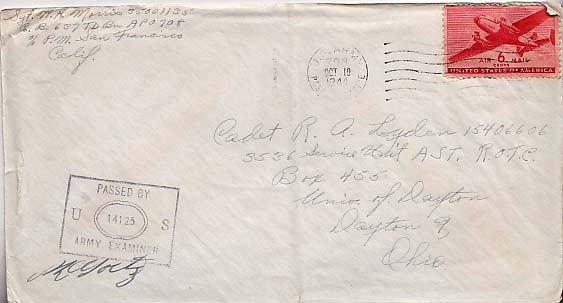 Sgt. M.H. Morris 35001135
657 TD Bn APO 708
c/o P.M. San Francisco
Calif.
U.S. ARMY
708
OCT 10
194
AIR 6 MAIL
CENTS
UNITED STATES OF AMERICA
Cadet R. A. Lyden 15406606
3536 Service Unit AST. R.O.T.C.
Box 455
Univ. of Dayton
Dayton 9
Ohio
PASSED BY
U 14125 S
ARMY EXAMINER